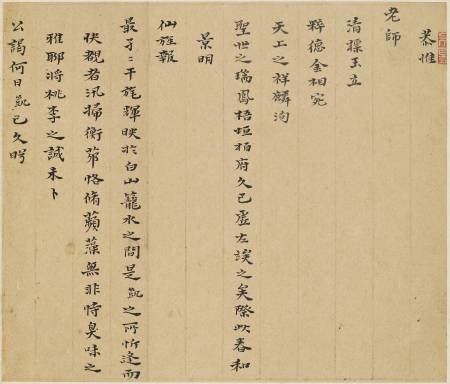 恭惟
老師
清標玉立
粹德金相宛
天工之祥麟洵
聖世之瑞鳳梧垣柏府久已虛左誒之矣際此春和
景明
仙旌報
最孑孑干旄輝映於白山籠水之間是凱之所忻逢而
快覩者汛掃衡茆恪脩蘋藻無非恃臭味之
雅聊將桃李之誠未卜
公謁何日凱已久盻